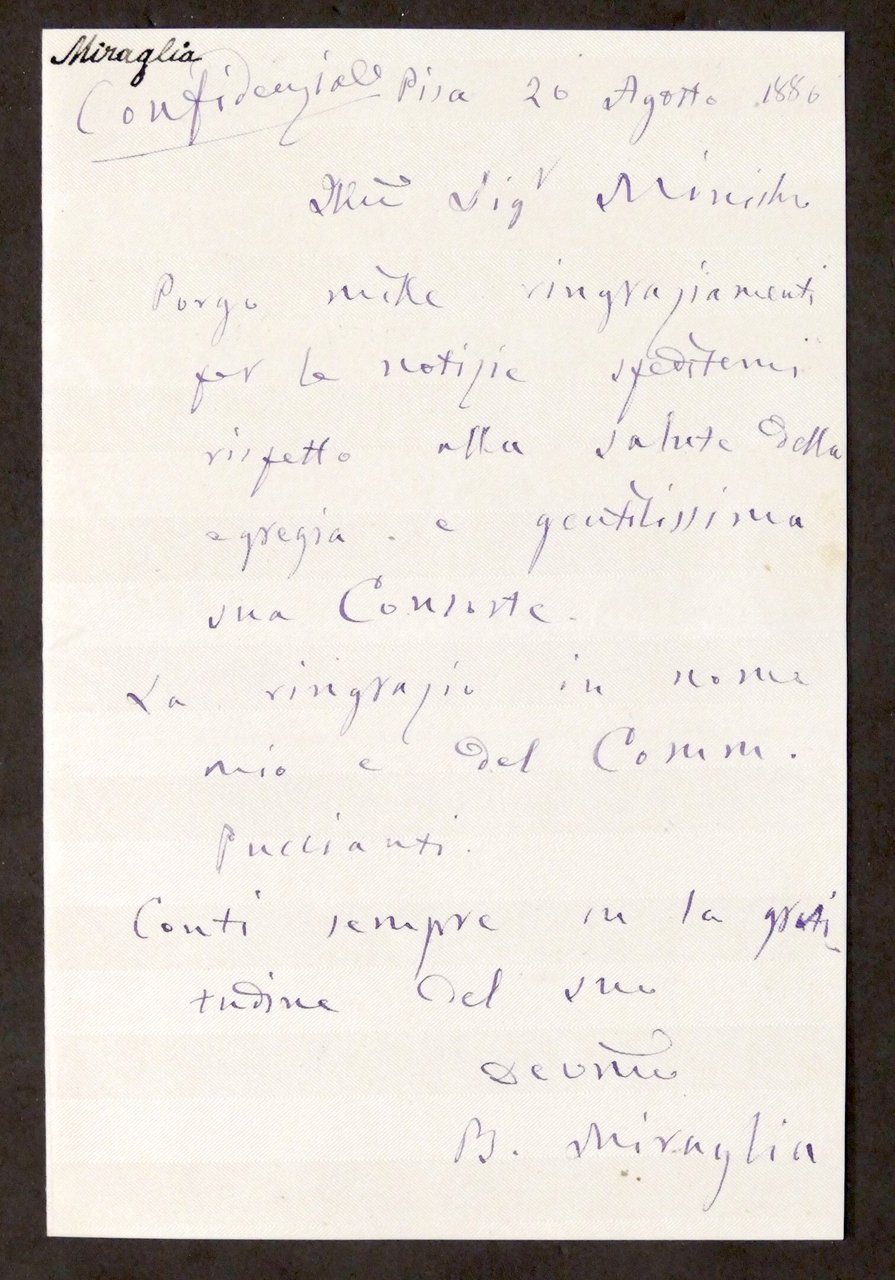 Miraglia
Confidenziale Pisa 26 Agosto 1886
Illmo Sigr Ministro
Porgo mille ringraziamenti
per le notizie speditemi
rispetto alla salute della
egregia e gentilissima
sua Consorte.
La ringrazio in nome
mio e del Comm.
Puccianti.
Conti sempre in la grati-
tudine del suo
Devmo
B. Miraglia